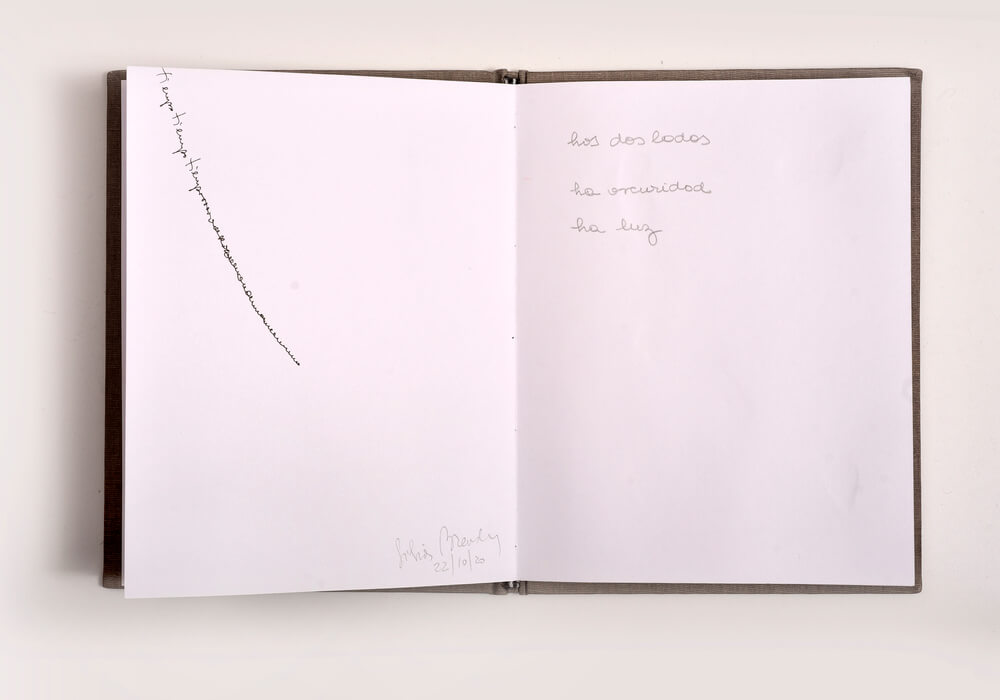 tiempotiempotiempo
22/10/20
Los dos lados
La oscuridad
La luz